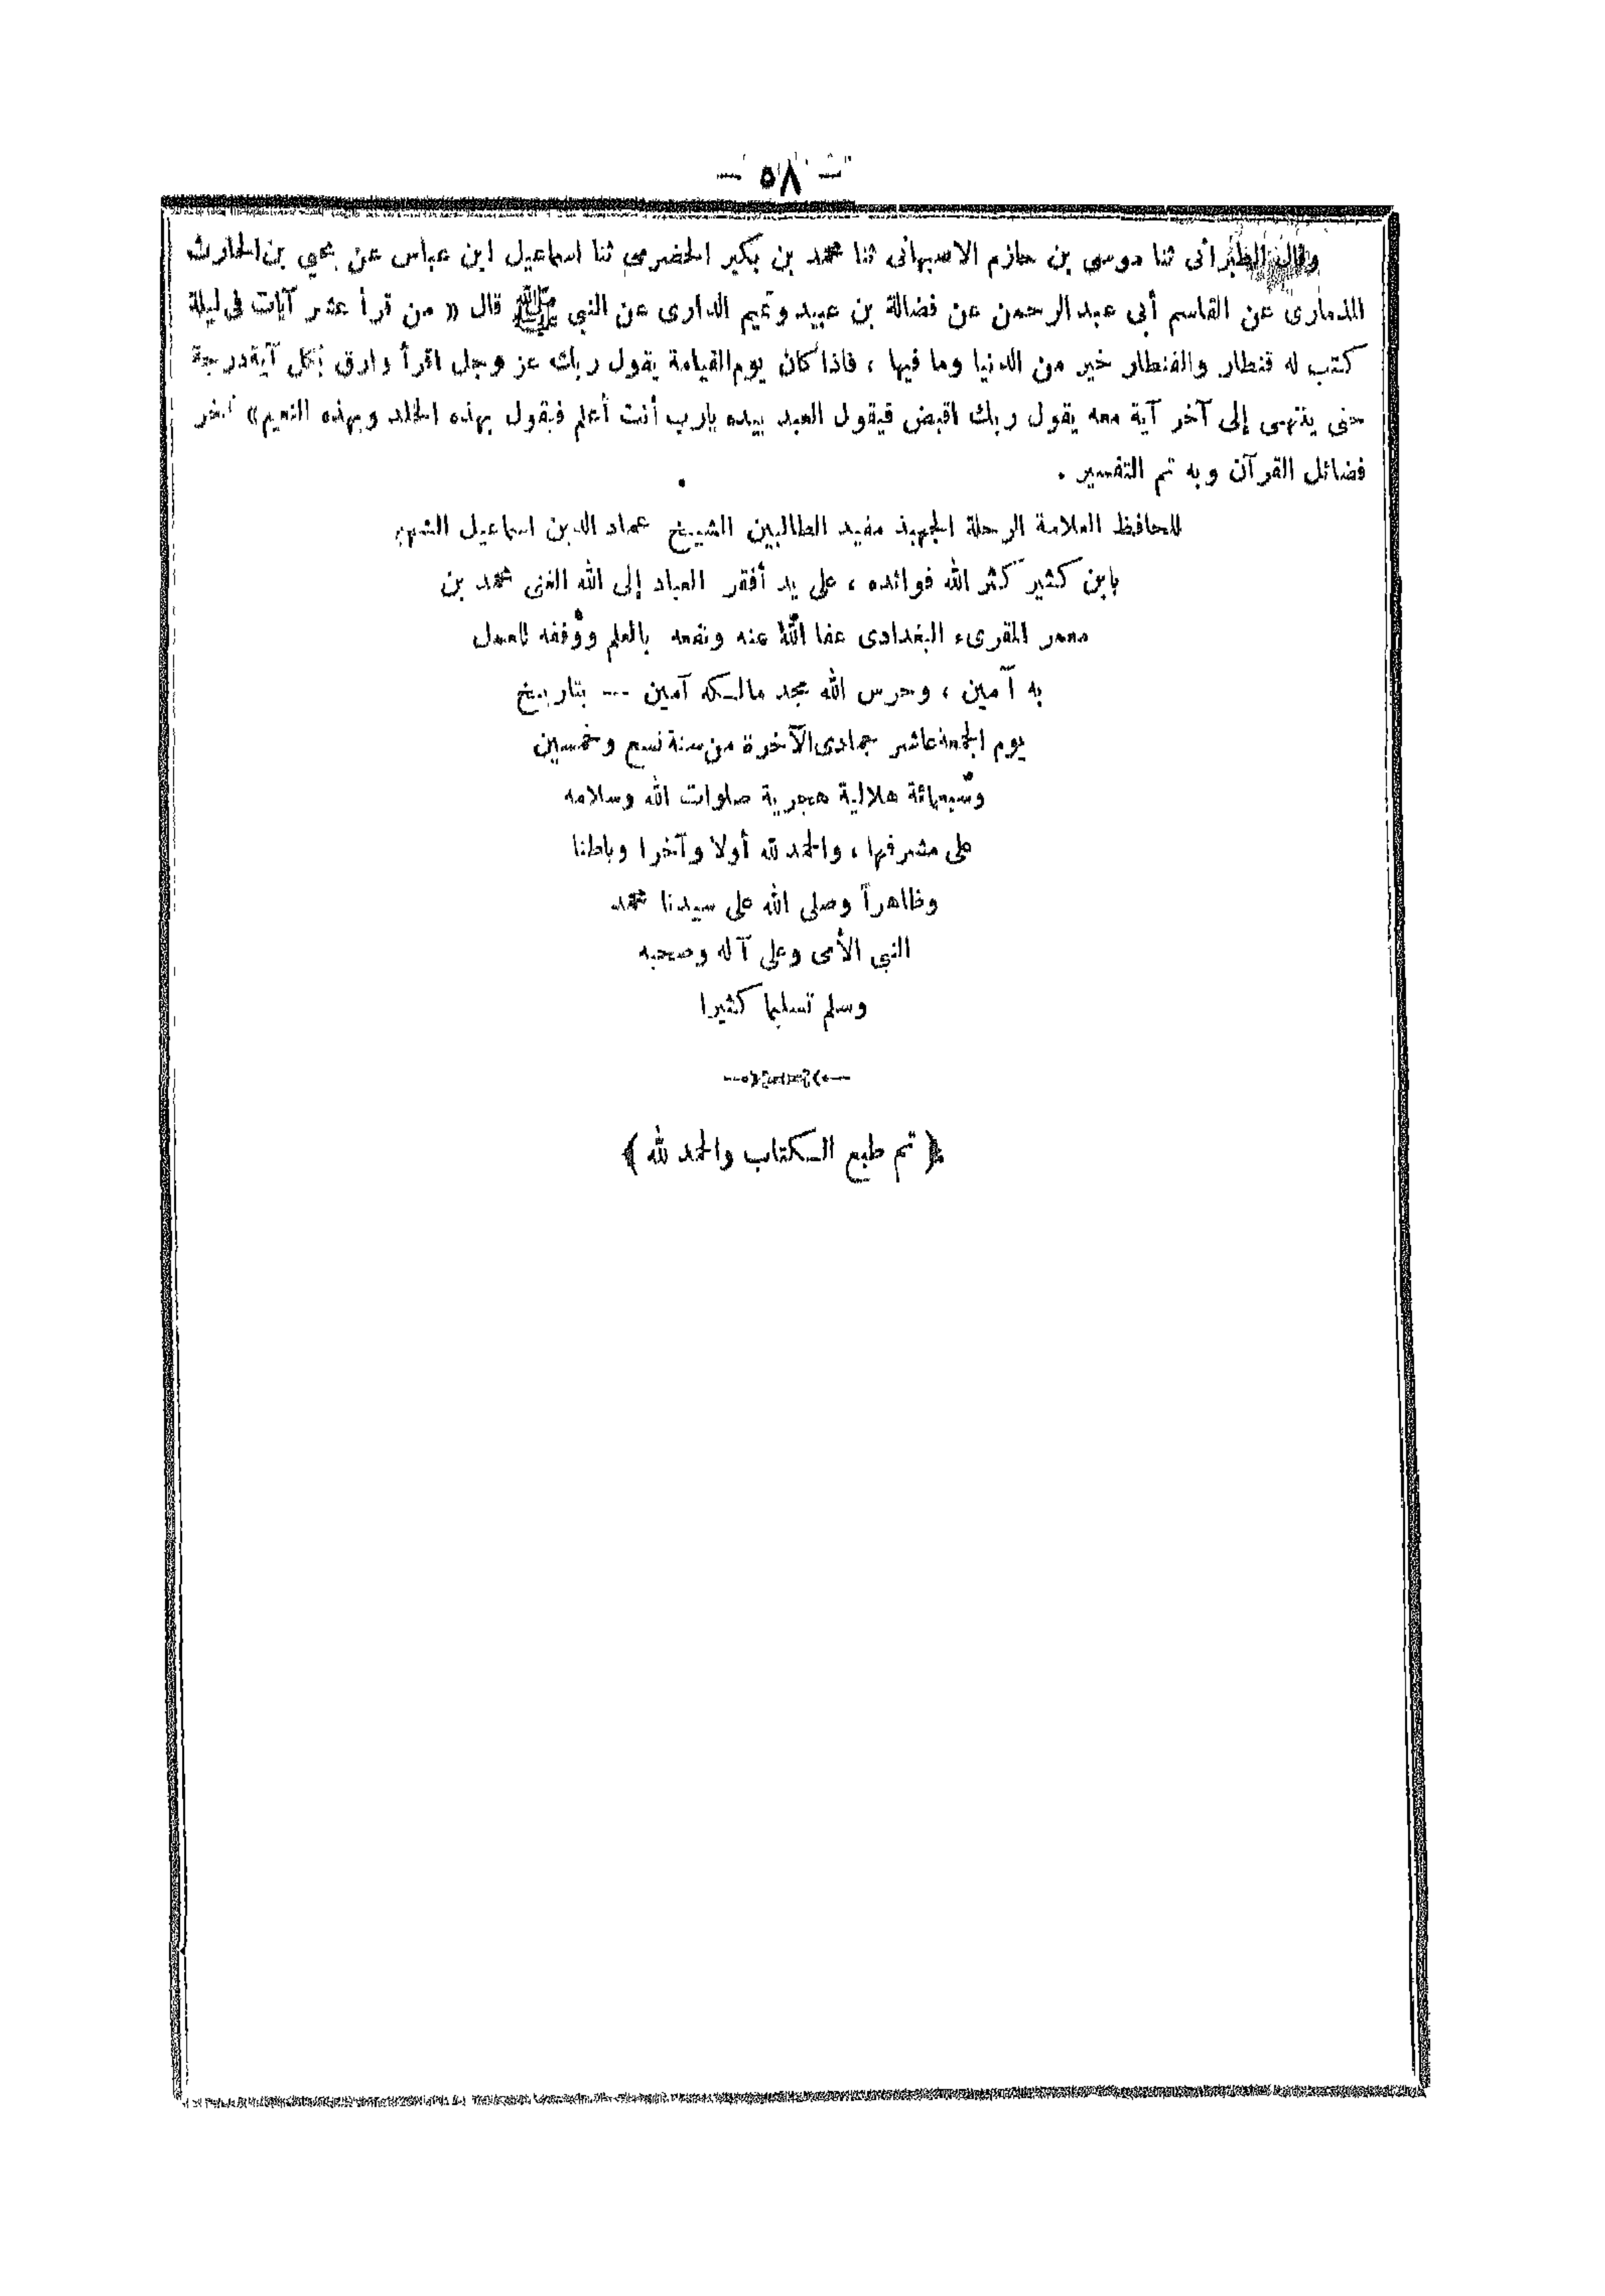 - ٥٨ -
وقال الطبرانى ثنا موسى بن حازم الاصبهانى ثنا محمد بن بكير الحضرمى ثنا اسماعيل ابن عباس عن يحيي بن الحارث
الذمارى عن القاسم أبى عبد الرحمن عن فضالة بن عبيد وتميم الدارى عن النبى ﷺ قال « من قرأ عشر آيات فى ليلة
كتب له قنطار والقنطار خير من الدنيا وما فيها ، فاذا كان يوم القيامة يقول ربك عز وجل اقرأ وارق بكل آية درجة
حتى ينتهى إلى آخر آية معه يقول ربك اقبض فيقول العبد بيده يارب أنت أعلم فيقول بهذه الخلد وبهذه النعيم» آخر
فضائل القرآن وبه تم التفسير .
للحافظ العلامة الرحلة الجهبذ مفيد الطالبين الشيخ عماد الدين اسماعيل الشهير
بابن كثير كثر الله فوائده ، على يد أفقر العباد إلى الله الغنى محمد بن
معمر المقرىء البغدادى عفا الله عنه ونفعه بالعلم ووفقه للعمل
به آمين ، وحرس الله مجد مالكه آمين --- بتاريخ
يوم الجمعة عاشر جمادى الآخرة من سنة تسع وخمسين
وسبعمائة هلالية هجرية صلوات الله وسلامه
على مشرفها ، والحمد لله أولا وآخرا وباطنا
وظاهراً وصلى الله على سيدنا محمد
النبى الأمى وعلى آله وصحبه
وسلم تسليما كثيرا
﴿ تم طبع الكتاب والحمد لله ﴾